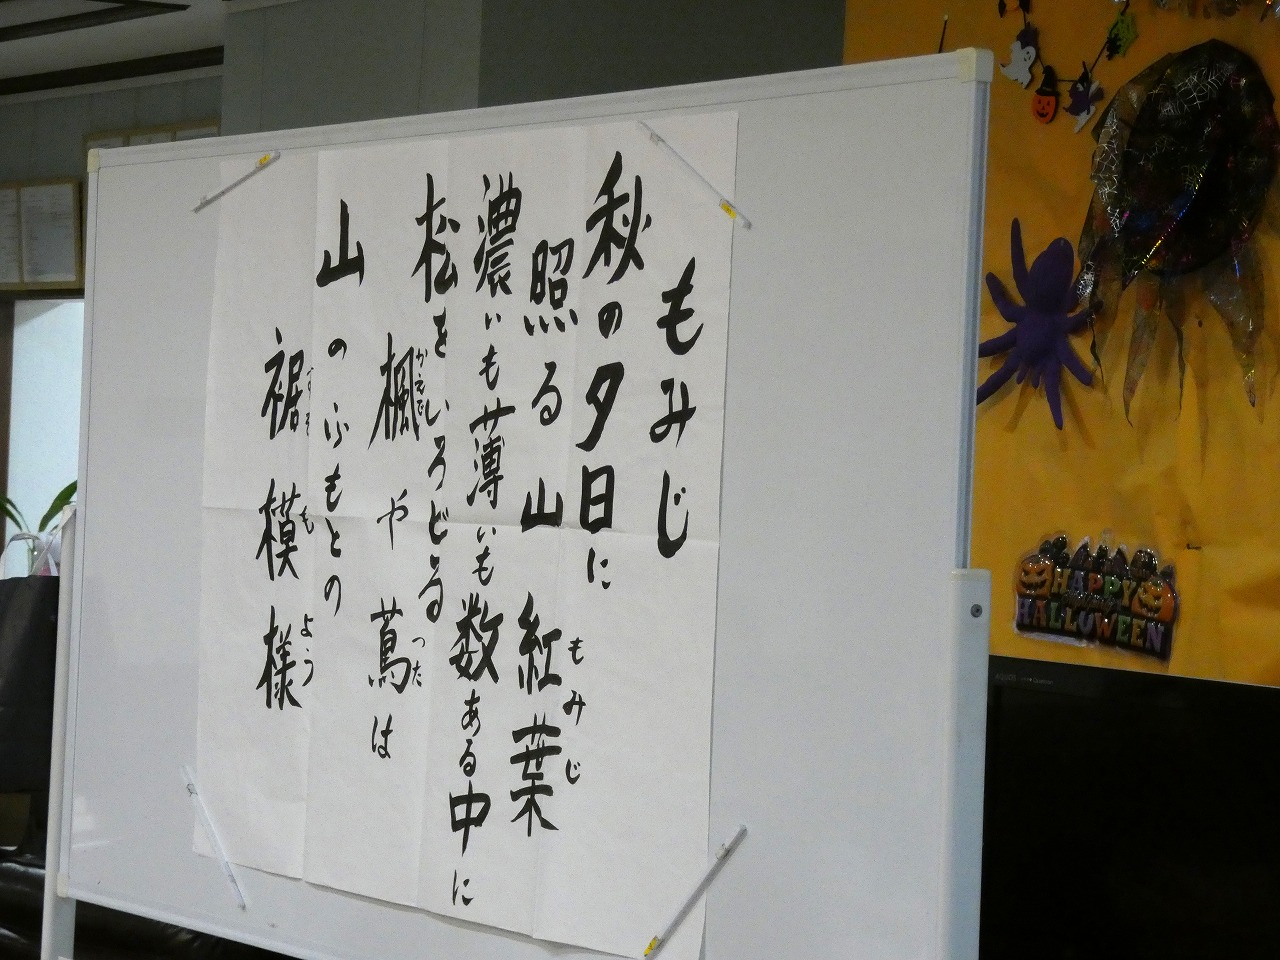 もみじ
秋の夕日に
照る山 紅葉
もみじ
濃いも薄いも数ある中に
松をいろどる
楓や蔦は
かえで
つた
山のふもとの
裾模様
すそ
も
よう
HAPPY
HALLOWEEN